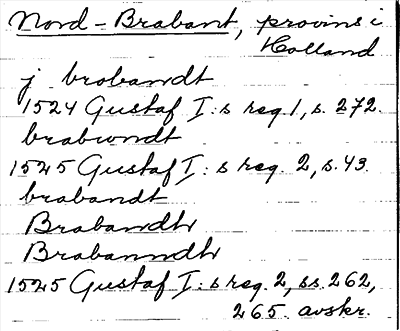 Nord-Brabant, provins i
Holland
j brabandt
1524 Gustaf I:s reg. 1, s. 272.
brabandt
1525 Gustaf I:s reg. 2, s. 43.
brabandt
Brabandtz
Brabanndtz
1525 Gustaf I:s reg. 2, ss. 262,
265. avskr.